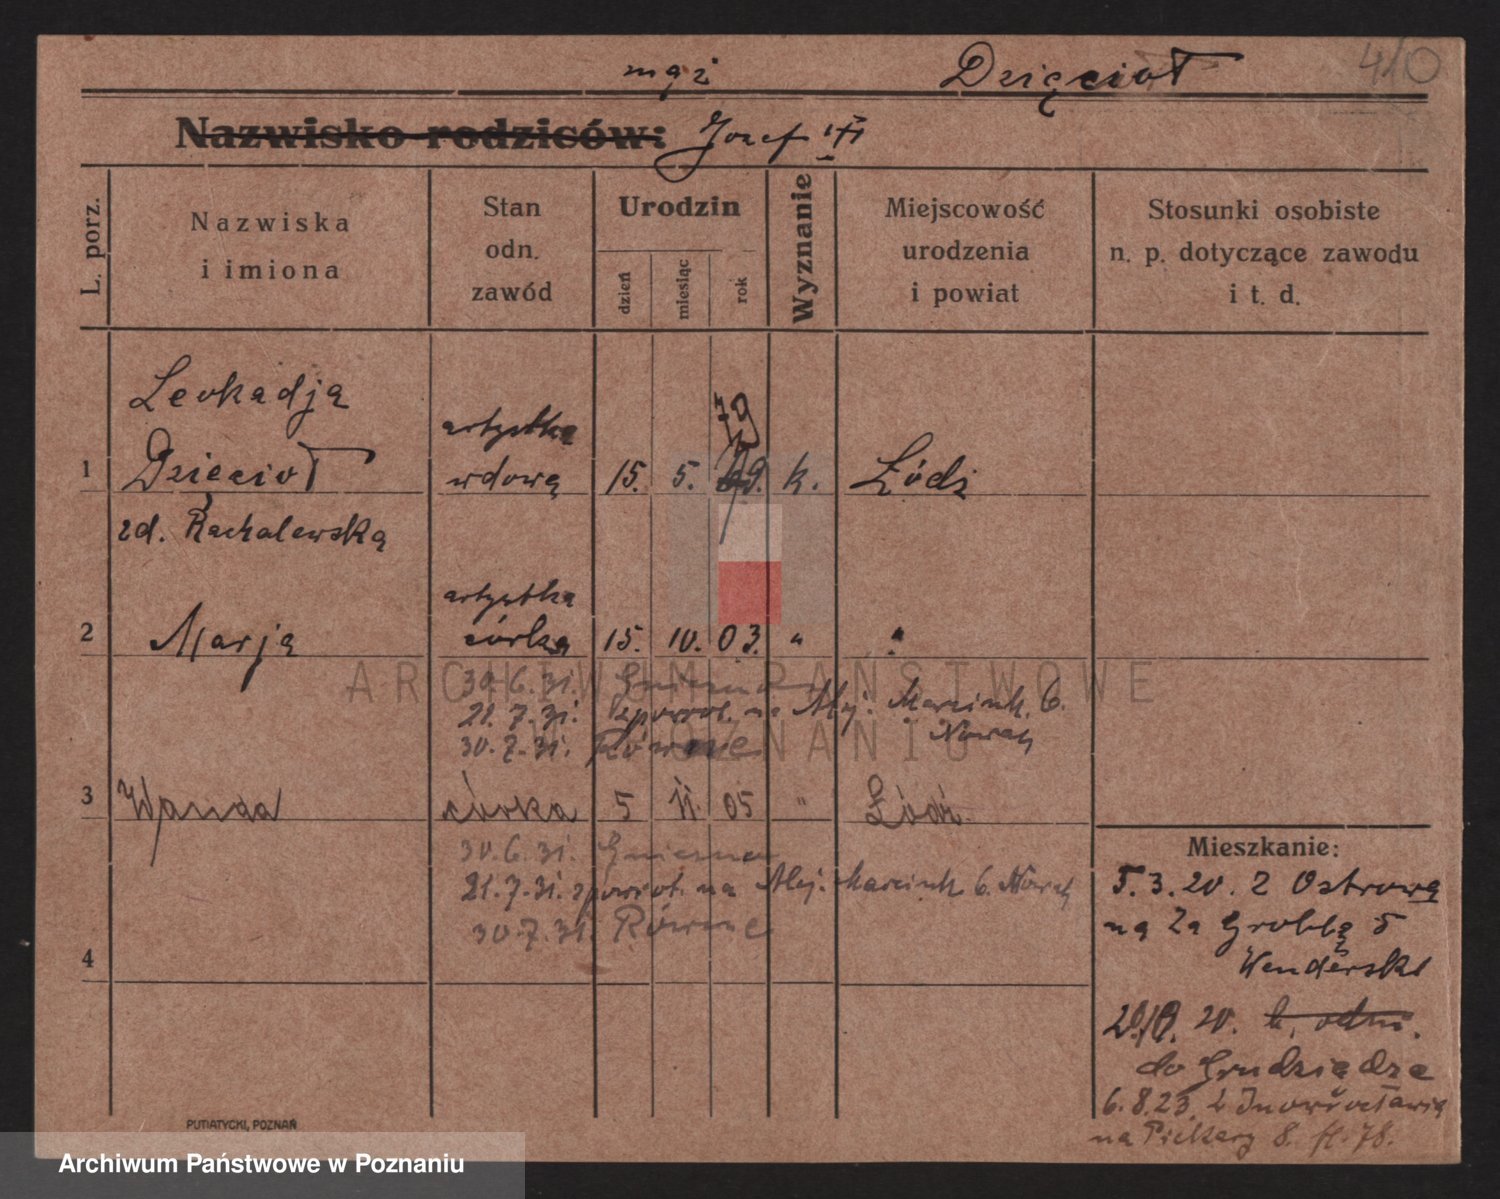 mąż Dzięcioł 410
Nazwisko rodziców: Józef
L. porz.
Nazwiska
i imiona
Stan
odn.
zawód
Urodzin
dzień
miesiąc
rok
Wyznanie
Miejscowość
urodzenia
i powiat
Stosunki osobiste
n. p. dotyczące zawodu
i t. d.
Leokadja
artystka 79
1 Dzięcioł wdowa 15. 5. k. Łódź
zd. Rachalewska
artystka
2 Marja córka 15. 10. 03. " "
30.6.31. Gniezno
21.7.31. zpowrot. na Alej. Marcink. 6.
Nowak
30.7.31. Równe
3 Wanda córka 5 11. 05 " Łódź
30.6.31. Gniezno
21.7.31. zpowrot. na Alej. Marcink. 6. Nowak
30.7.31. Równe
4
Mieszkanie:
5.3.20. z Ostrowa
na Za Groblą 5
20. b. odm.
do Grudziądza
6.8.23. z Inowrocławia
na Piekary 8.
PUTIATYCKI, POZNAŃ
ARCHIWUM PAŃSTWOWE
W POZNANIU
Archiwum Państwowe w Poznaniu